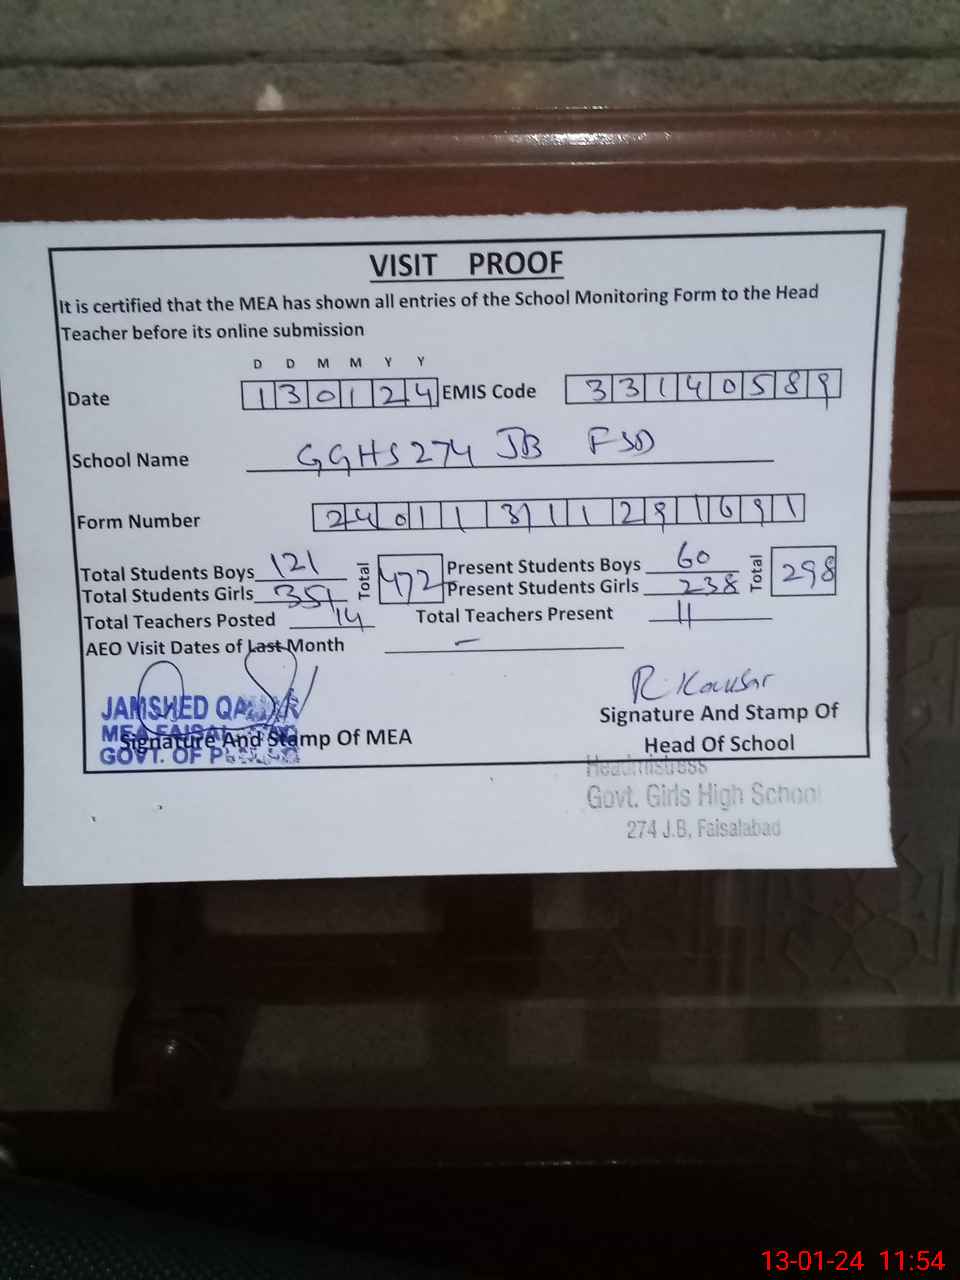 VISIT PROOF
It is certified that the MEA has shown all entries of the School Monitoring Form to the Head
Teacher before its online submission
D D M M Y Y
Date 130124 EMIS Code 33140589
School Name GGHS 274 JB FSD
Form Number 24011311291691
Total Students Boys 121 Total 472 Present Students Boys 60 Total 298
Total Students Girls 351 Present Students Girls 238
Total Teachers Posted 14 Total Teachers Present 11
AEO Visit Dates of Last Month –
JAMSHED R. Kausar
MEA Signature And Stamp Of MEA Signature And Stamp Of
GOVT. OF Head Of School
Headmistress
Govt. Girls High School
274 J.B, Faisalabad
13-01-24 11:54